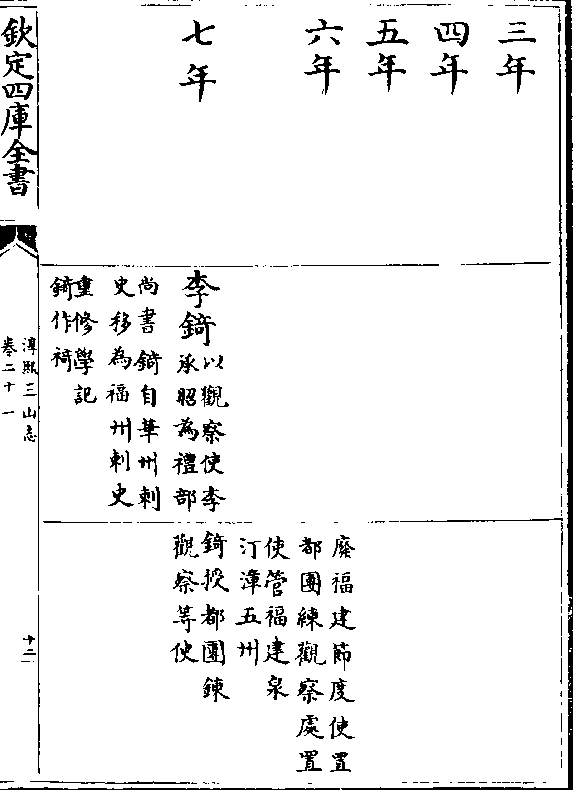 三年
四年
五年
六年
七年
李錡
以觀察使李
承昭為禮部
尚書錡自華州刺
史移為福州刺史
重修學記
錡作
廢福建節度使置
都團練觀察處置
使管福建泉
汀漳五州
錡授都團鍊
觀察等使
欽定四庫全書
淳熙三山志
卷二十一
十二